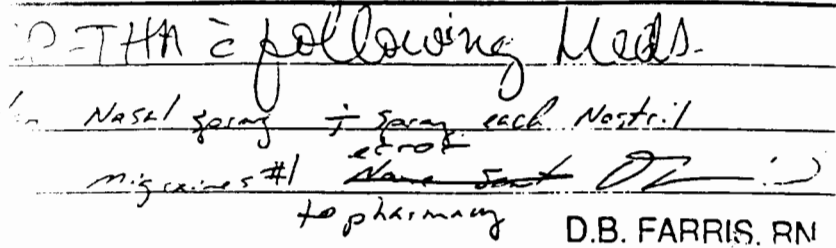 c̄ following Meds.
Nasal spray † spray each Nostril
error
migraines #1 Have Sent
to pharmacy
D.B. FARRIS, RN